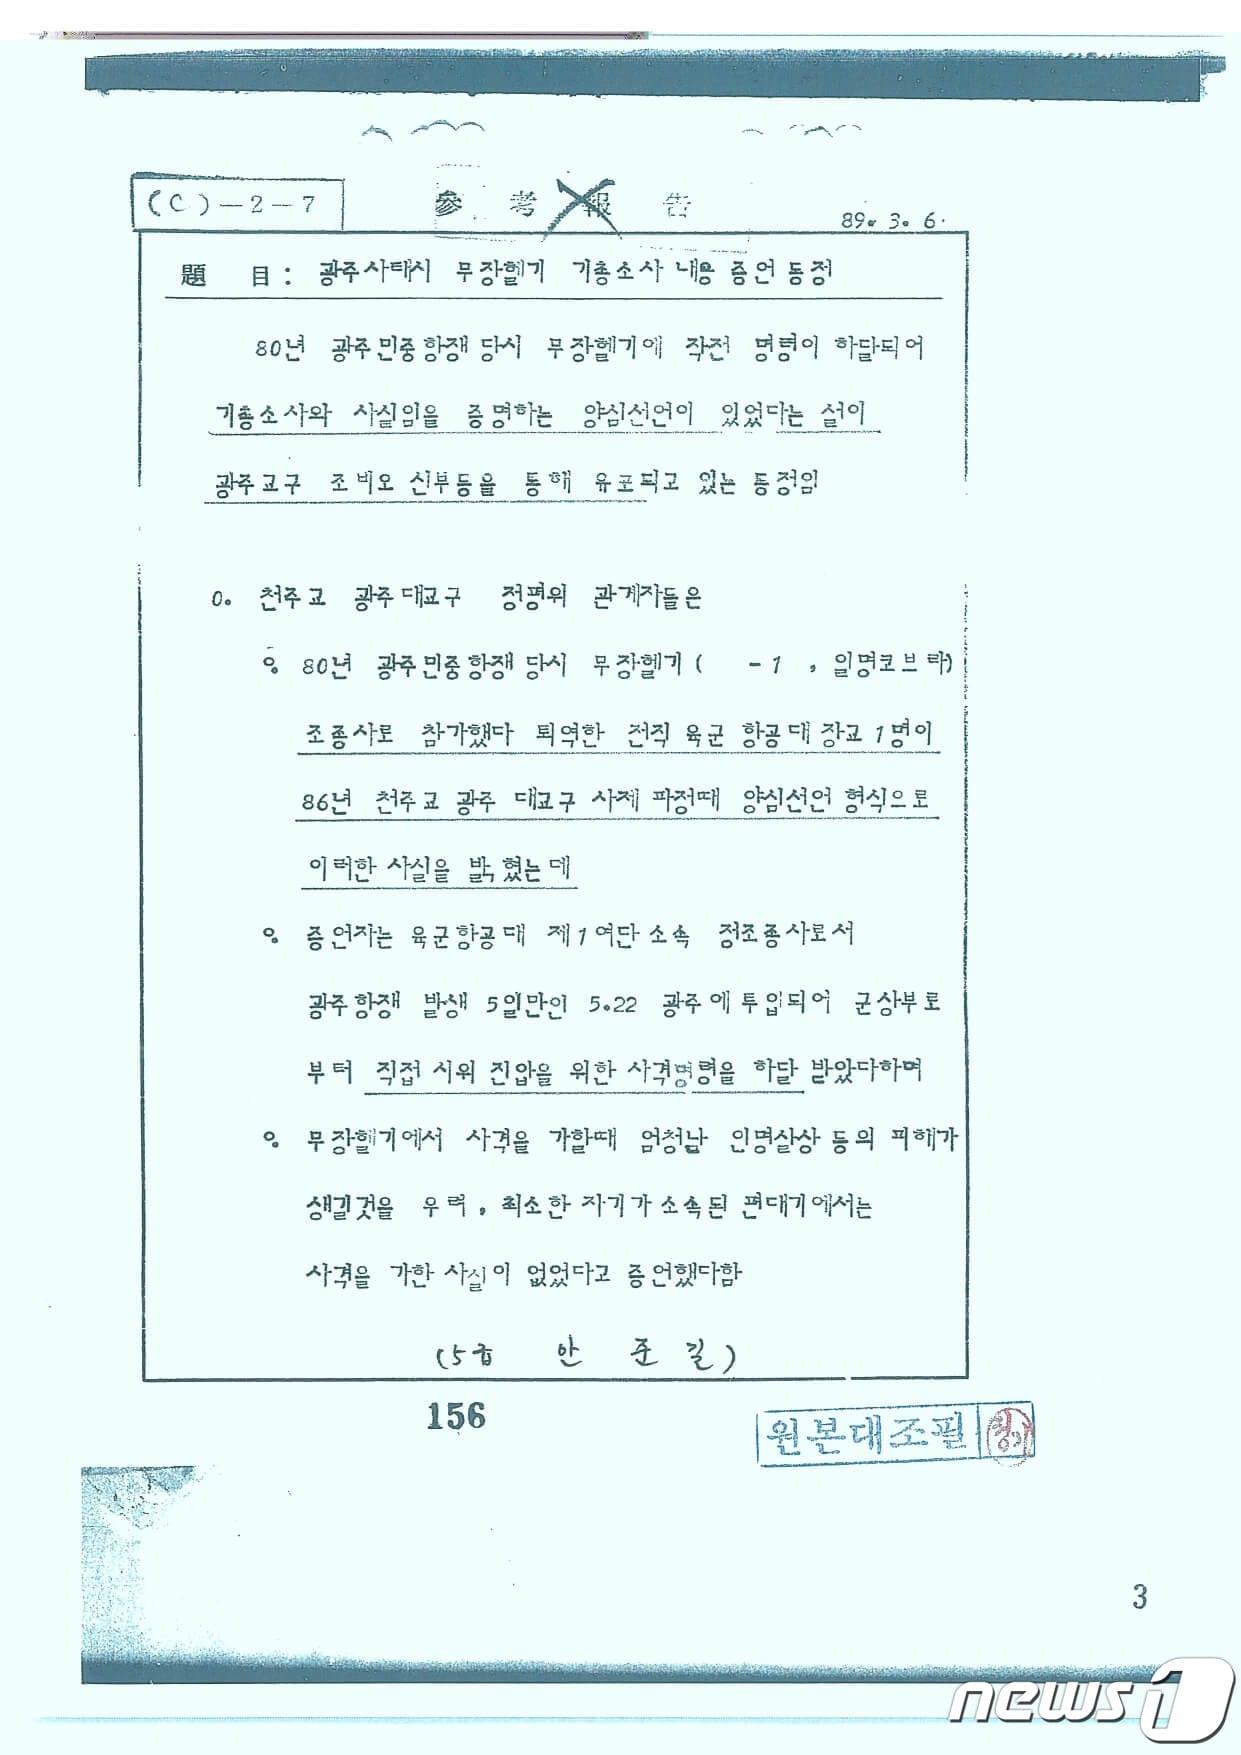 (C)-2-7
參考報告
89. 3. 6.
題 目 : 광주사태시 무장헬기 기총소사 내용 증언 동정
80년 광주민중항쟁 당시 무장헬기에 작전 명령이 하달되어
기총소사와 사실임을 증명하는 양심선언이 있었다는 설이
광주교구 조비오 신부등을 통해 유포되고 있는 동정임
0. 천주교 광주대교구 정평위 관계자들은
o. 80년 광주민중항쟁 당시 무장헬기 ( -1 , 일명코브라)
조종사로 참가했다 퇴역한 전직 육군 항공대 장교 1명이
86년 천주교 광주 대교구 사제 파정때 양심선언 형식으로
이러한 사실을 밝혔는데
o. 증언자는 육군항공대 제1여단 소속 정조종사로서
광주항쟁 발생 5일만인 5.22 광주에 투입되어 군상부로
부터 직접 시위 진압을 위한 사격명령을 하달 받았다하며
o. 무장헬기에서 사격을 가할때 엄청난 인명살상 등의 피해가
생길것을 우려 , 최소한 자기가 소속된 편대기에서는
사격을 가한 사실이 없었다고 증언했다함
(5급 안 준 길)
156
원본대조필
3
news1